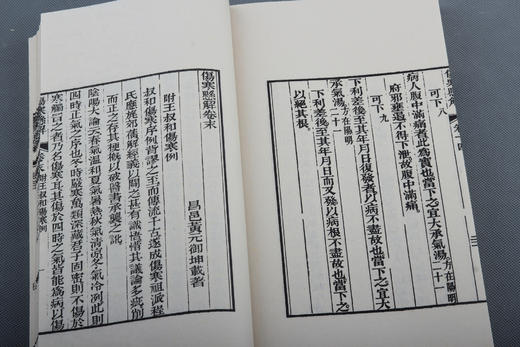 可下八
病人腹中滿痛者此為實也當下之宜大承氣湯方在陽明二十一
府邪壅遏不得下泄故腹中滿痛
可下九
下利差後至其年月日復發者以病不盡故也當下之宜大
承氣湯方在陽明二十一
下利差後至其年月日而又發以病根不盡故也當下之
以絕其根
傷寒懸解卷末
昌邑黃元御坤載著
附王叔和傷寒例
叔和傷寒序例背謬之至而傳流千古遂成傷寒祖派程
氏應旄郊倩解經義以闢之甚有識據惜其議論多疵削
而正之存其梗概以破醫書承襲之訛
陰陽大論云春氣溫和夏氣暑熱秋氣清涼冬氣冷冽此則
四時正氣之序也冬時嚴寒萬類深藏君子固密則不傷於
寒觸冒之者乃名傷寒耳其傷於四時之氣皆能為病以傷
卷末附王叔和傷寒例